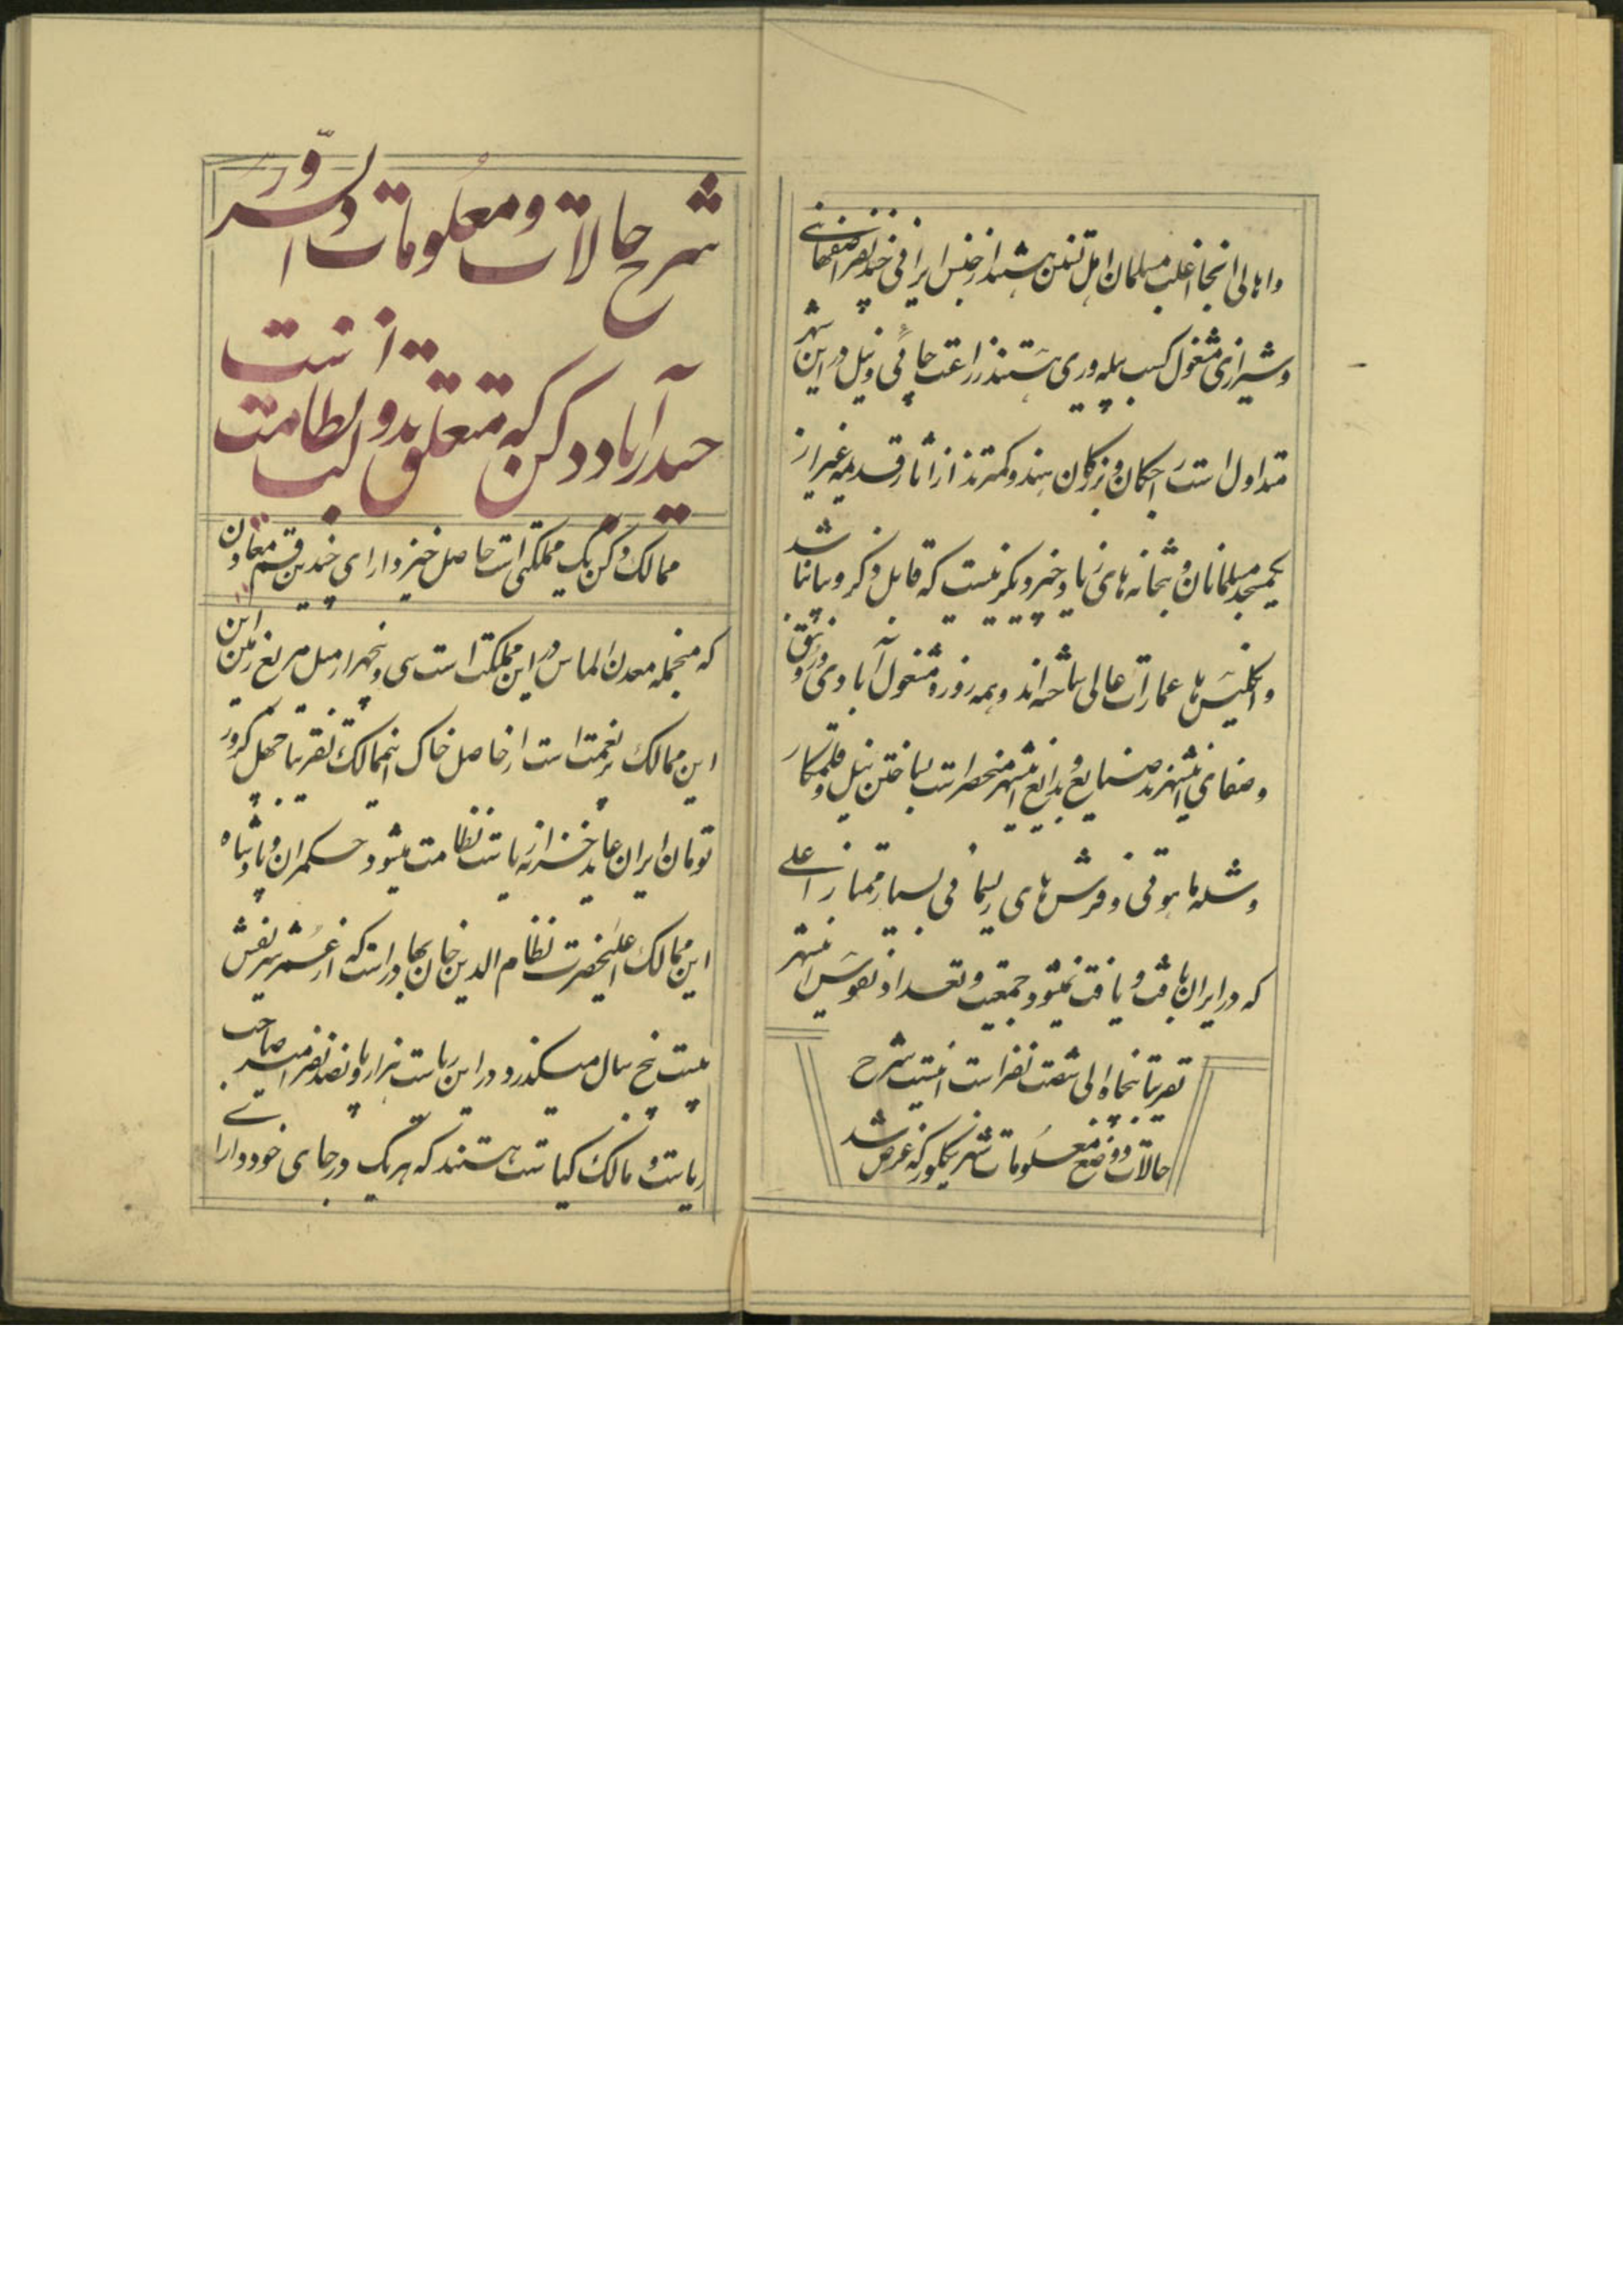 و اهالی انجا اغلب مسلمان اهل تسنن هستند از جنس ایرانی چند نفر اصفهانی
و شیرازی مشغول کسب پیله‌وری هستند زراعت چائی و نیل در این شهر
متداول است احکان و بزرکان هندو کمترند از اثار قدیمه غیر از
یکمسجد مسلمانان و بتخانه های زیاد چیز دیکر نیست که قابل ذکر و بیان باشد
و انکلیس ها عمارات عالی ساخته‌اند و همه روزه مشغول آبادی و رونق
و صفای اینشهرند صنایع و بدایع اینشهر منحصر است بساختن نیل و قلمکار
و شله ماهوتی و فرش های ریسمانی بسیار ممتاز اعلی
که در ایران بافت و یافت نمیشود جمعیت و تعداد نفوس اینشهر
تقریبا پنجاه الی شصت نفر است اینست شرح
حالات و وضع معلومات شهر بنکلور که عرض شد
شرح حالات و معلومات ادکسر
حیدرآباد دکن که متعلق بدولت نظامت است
ممالک دکن یک مملکتی است حاصل خیز دارای چندین قسم معادن
که منجمله معدن الماس در این مملکت است سی و پنجهزار میل مربع زمین این
این ممالک پر نعمت است از حاصل خاک اینممالک تقریبا چهل کرور
تومان ایران عاید خزانه ریاست نظامت میشود حکمران و پادشاه
این ممالک اعلیحضرت نظام الدین خان بهادر است که از عمر شریفش
بیست پنج سال میکذرد و در این ریاست هزار و پانصد نفر امیر صاحب
ریاست و مالک کیاست هستند که هر یک در جای خود دارای